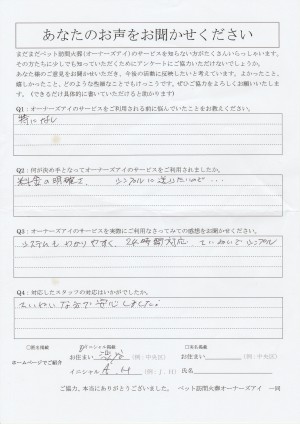 あなたのお声をお聞かせください
まだまだペット訪問火葬(オーナーズアイ)のサービスを知らない方がたくさんいらっしゃいます。
その方たちに少しでも知っていただくためにアンケートにご協力いただけないでしょうか。
あなた様のご意見をお聞かせいただき、今後の活動に反映したいと考えています。よかったこと、
嬉しかったこと、どのような些細なことでもけっこうです。ぜひご協力をよろしくお願いいたします。(できるだけ具体的に書いていただけると助かります)
Q1:オーナーズアイのサービスをご利用される前に悩んでいたことをお教えください。
特になし
Q2:何が決め手となってオーナーズアイのサービスをご利用されましたか。
料金の明確さ、シンプルに送りたいので…
Q3:オーナーズアイのサービスを実際にご利用なさってみての感想をお聞かせください。
システムもわかりやすく、24時間対応 ていねいでシンプル
Q4:対応したスタッフの対応はいかがでしたか。
ていねいな方で安心しました。
□匿名掲載 イニシャル掲載 □実名掲載
ホームページでご紹介
お住まい 渋谷 (例:中央区) お住まい (例:中央区)
イニシャル A.H (例:J.H) 氏名
ご協力、本当にありがとうございました。 ペット訪問火葬オーナーズアイ 一同